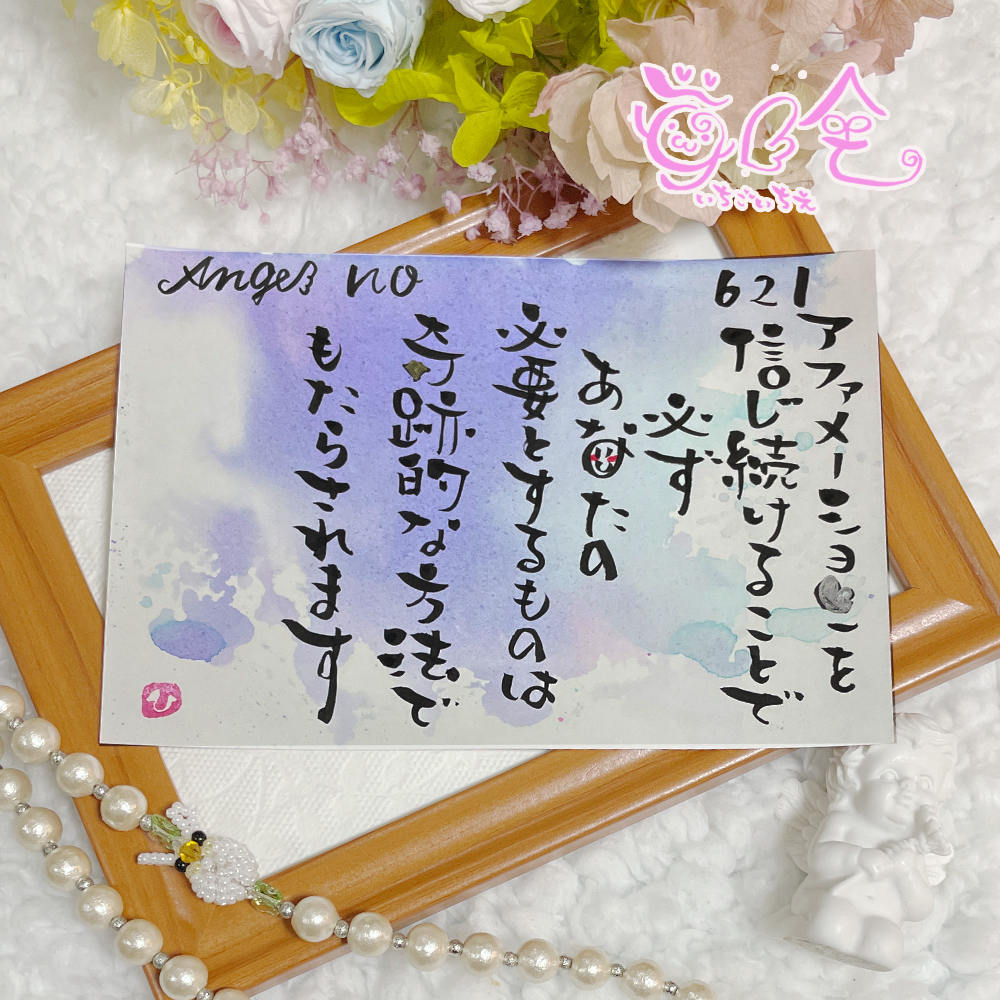 Angel no
621
アファメーションを
信じ続けることで
必ず
あなたの
必要とするものは
奇跡的な方法で
もたらされます
いちごいちえ